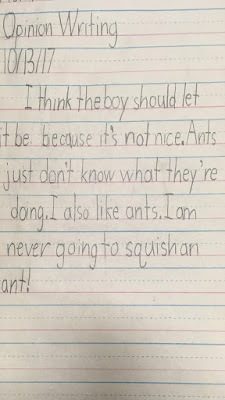 Opinion Writing
10/13/17
I think the boy should let
it be because it's not nice. Ants
just don't know what they're
dong. I also like ants. I am
never going to squish an
ant!